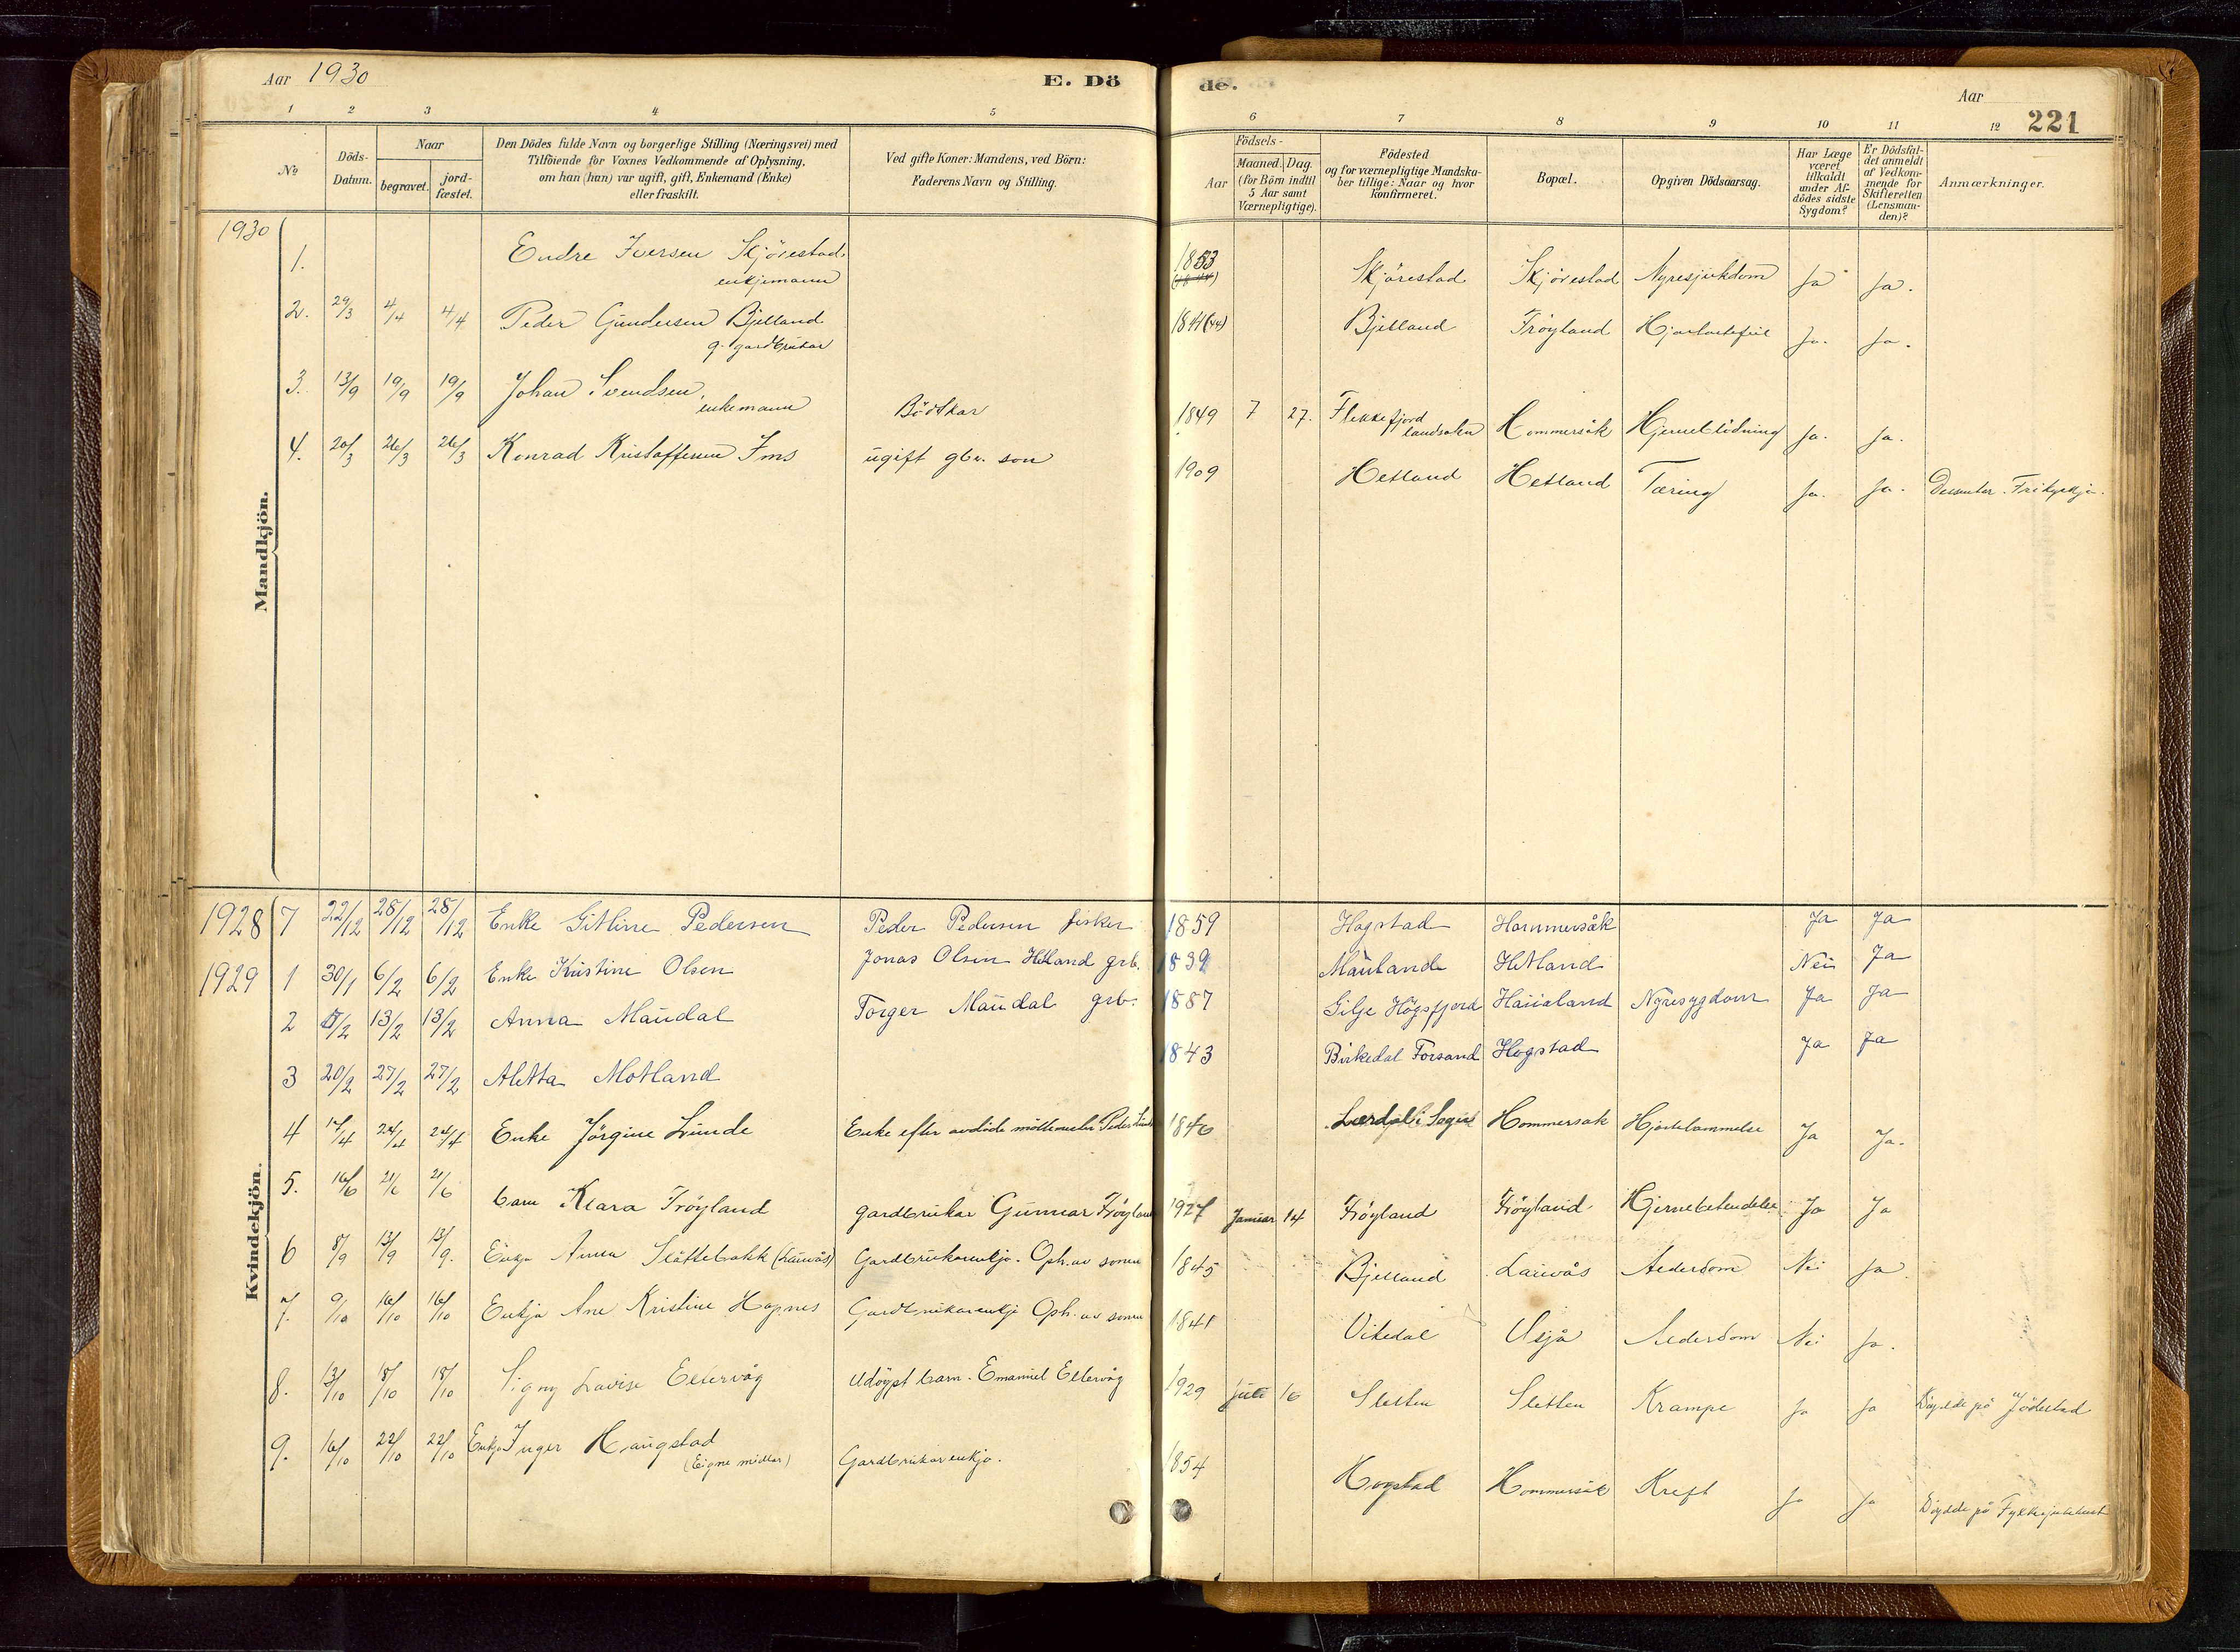 Aar 1930 E. Dö de. Aar 221
1 2 3 4 5 6 7 8 9 10 11 12
№ Döds-Datum. Naar begravet. jord-fæstet. Den Dödes fulde Navn og borgerlige Stilling (Næringsvei) med Tilföiende for Voxnes Vedkommende af Oplysning, om han (hun) var ugift, gift, Enkemand (Enke) eller fraskilt. Ved gifte Koner: Mandens, ved Börn: Faderens Navn og Stilling. Födsels- Aar Maaned. Dag. (for Börn indtil 5 Aar samt Værnepligtige). Födested og for værnepligtige Mandskaber tillige: Naar og hvor konfirmeret. Bopæl. Opgiven Dödsaarsag. Har Læge været tilkaldt under Afdödes sidste Sygdom? Er Dödsfaldet anmeldt af Vedkommende for Skifteretten (Lensmanden)? Anmærkninger.
Mandkjön.
1930
1. Endre Iversen Skjörestad enkjemann 1853 Skjörestad Skjörestad Nyresjukdom Ja Ja.
2. 29/3 4/4 4/4 Peder Gundersen Bjelland g. gardbrukar 1841 (44) Bjelland Fröyland Hjartefeil Ja. Ja.
3. 13/9 19/9 19/9 Johan Svendsen, enkemann Bödkar 1849 7 27. Flekkefjord landsokn Hommersåk Hjerneblödning Ja. Ja.
4. 20/3 26/3 26/3 Konrad Kristoffersen Ims ugift gbr. son 1909 Hetland Hetland Tæring Ja. Ja. Dissenter. Frikyrkja.
Kvindekjön.
1928 7 22/12 28/12 28/12 Enke Gitline Pedersen Peder Pedersen fisker 1859 Hogstad Hommersåk Ja Ja
1929 1 30/1 6/2 6/2 Enke Kristine Olsen Jonas Olsen Hetland grb. 1839 Mauland Hetland Nei Ja
2 5/2 13/2 13/2 Anna Maudal Torger Maudal grb. 1887 Gilje Högsfjord Haualand Nyresygdom Ja Ja
3 20/2 27/2 27/2 Aletta Motland 1843 Birkedal Forsand Hogstad Ja Ja
4 17/4 24/4 24/4 Enke Jörgine Lunde Enke efter avdöde möllemester Peder Lunde 1840 Lærdal i Sogn Hommersak Hjertelammelse Ja Ja.
5. 16/6 21/6 21/6 barn Klara Fröyland gardbrukar Gunnar Fröyland 1927 Januar 14 Fröyland Fröyland Hjernebetendelse Ja Ja
6 8/9 13/9 13/9. Enkja Anna Slåttebakk (Lauvås) Gardbrukarenkje. Oph. av sonen 1845 Bjelland Lauvås Alderdom Nei Ja
7. 9/10 16/10 16/10 Enkja Ane Kristine Hapnes Gardbrukarenkje Oph. av sonen 1841 Vikedal Usjå Alderdom Nei Ja.
8. 13/10 18/10 18/10 Signy Lovise Eltervåg Udöypt barn. Emanuel Eltervåg 1929 Juli 16 Sletten Sletten Krampe Ja Ja Döydde på Jödestad
9. 16/10 22/10 22/10 Enkja Inger Haugstad (Eigne midlar) Gardbrukarenkja. 1854 Hogstad Hommersåk Kreft Ja Ja Döydde på Fylkesjukehuset